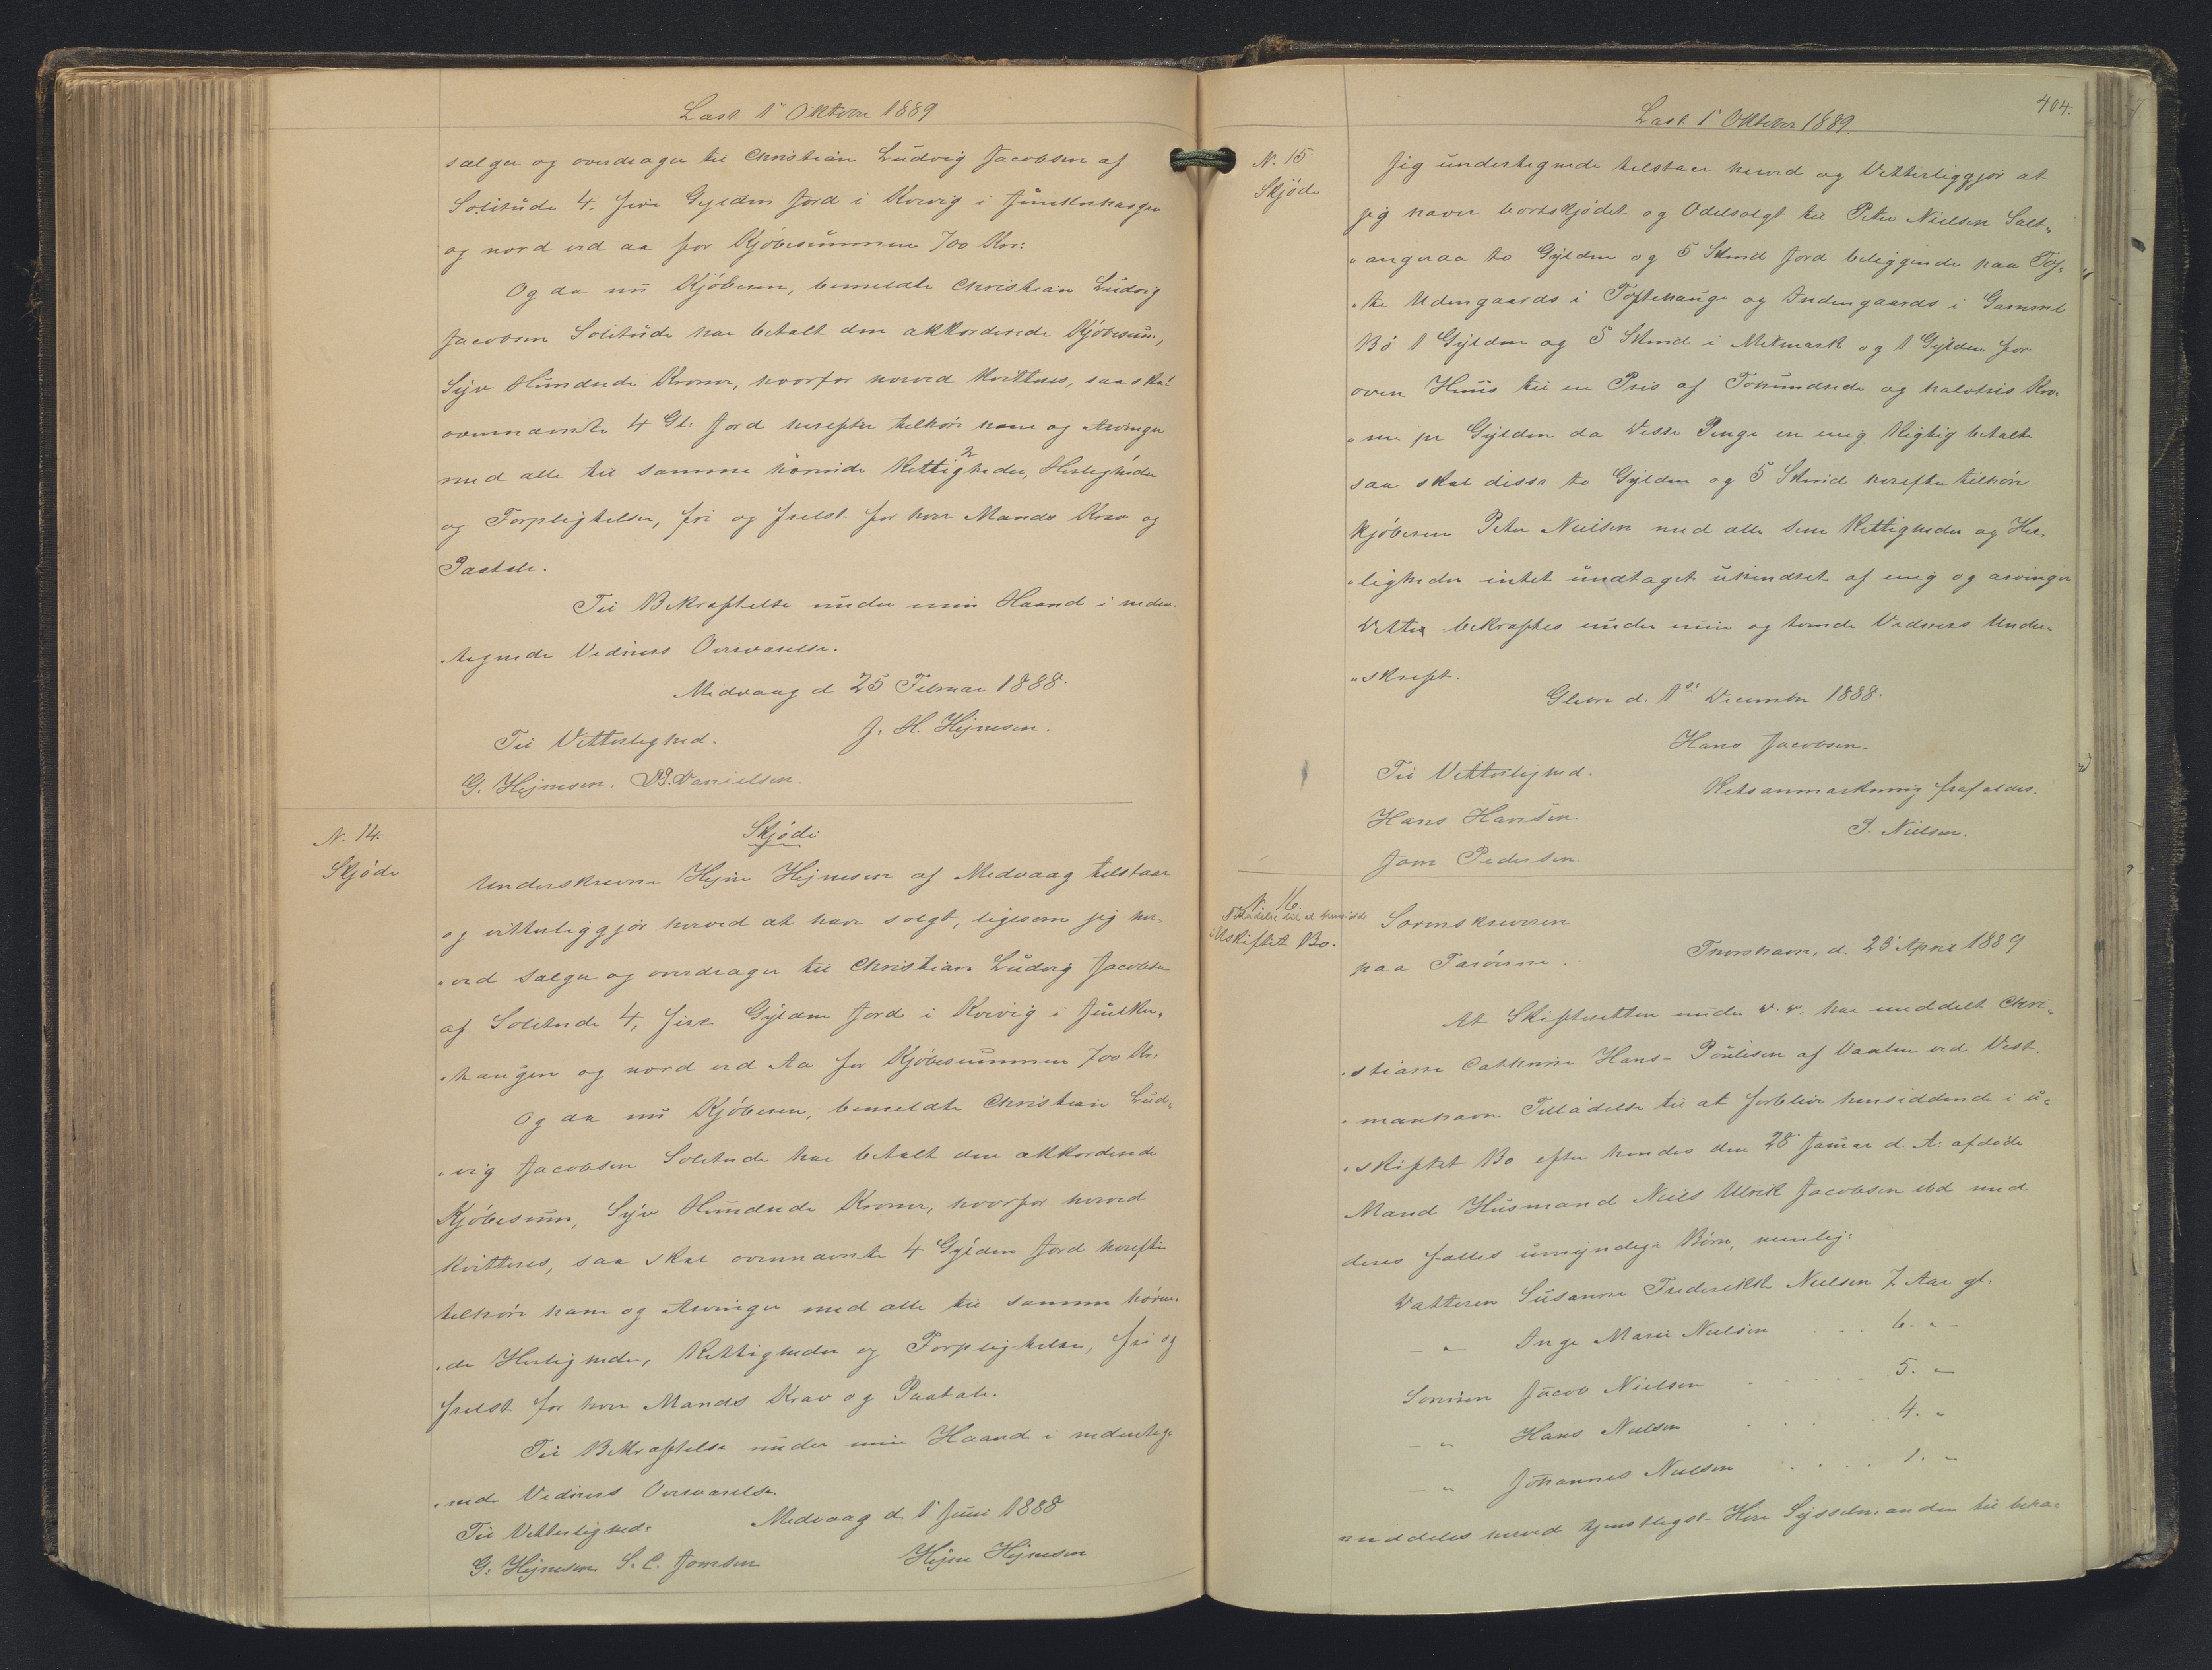 Læst 1' Oktober 1889
sælger og overdrager til Christian Ludvig Jacobsen af
Solitude 4. fire Gylden Jord i Kvivig i
og nord ved aa for Kjöbesummen 700 Kr:
Og da nu Kjöberen, bemeldte Christian Ludvig
Jacobsen Solitude har betalt den akkorderede Kjöbesum,
Syv Hundrede Kroner, hvorfor herved kvitteres, saa skal
ovennævnte 4 Gl: Jord herefter tilhöre ham og Arvinger
med alle til samme hörende Rettigheder, Herligheder
og Forpligtelser, fri og frelst for hver Mands Krav og
Paatale.
Til Bekræftelse under min Haand i neden-
tegnede Vidners Overværelse.
Midvaag d 25 Februar 1888.
Til Vitterlighed. J. H. Hejnesen.
G. Hejnesen. Danielsen.
N. 14.
Skjöde
Skjöde
Underskrevne Hejne Hejnesen af Medvaag tilstaar
og vitterliggjör herved at have solgt, ligesom jeg her-
ved sælger og overdrager til Christian Ludvig Jacobsen
af Solitude 4, fire Gylden Jord i Kvivig i
haugen og nord ved Aa for Kjöbesummen 700 Kr:
Og da nu Kjöberen, bemeldte Christian Lud-
vig Jacobsen Solitude har betalt den akkorderede
Kjöbesum, Syv Hundrede Kroner, hvorfor herved
kvitteres, saa skal ovennævnte 4 Gylden Jord herefter
tilhöre ham og Arvinger med alle til samme hören-
de Herligheder, Rettigheder og Forpligtelser, fri og
frelst for hver Mands Krav og Paatale.
Til Bekræftelse under min Haand i nedenteg-
nede Vidners Overværelse.
Medvaag d 1' Juni 1888
Til Vitterlighed:
G. Hejnesen S. C. Joensen Hejne Hejnesen
404.
Læst 1' Oktober 1889.
N. 15
Skjöde
Jeg undertegnede tilstaar herved og Vitterliggjör at
jeg haver bortskjödet og Odelsolgt til Peter Nielsen Salt-
angeraa to Gylden og 5 Skind Jord beliggende paa Tof-
te Udengaards i Toftehauge og Indengaards i Gammel
Bö 1 Gylden og 5 Skind i Metmark og 1 Gylden for
oven Huus til en Pris af Tohundrede og halvtres Kro-
ner pr Gylden da disse Penge er mig Rigtig betalte
saa skal disse to Gylden og 5 Skind herefter tilhöre
kjöberen Peter Nielsen med alle sine Rettigheder og Her-
ligheder intet undtaget uhindret af mig og arvinger
Dette bekræftes under min og tvende Vidners Under-
skrift.
Glibre d. 1ste December 1888.
Hans Jacobsen.
Til Vitterlighed.
Retsanmærkning frafaldes.
Hans Hansen. P. Nielsen.
Joen Pedersen.
N. 16.
Tilladelse til at hensidde
i Uskiftet Bo.
Sorenskriveren
paa Færöerne. Thorshavn, d. 23' April 1889
At Skifteretten under D. D. har meddelt Chri-
stiane Cathrine Hans-Poulsen af Vaalen ved Vest-
manhavn Tilladelse til at forblive hensiddende i u-
skiftet Bo efter hendes den 28' Januar d. A. afdöde
Mand Husmand Niels Ulrik Jacobsen ibd med
deres fælles umyndige Börn, nemlig:
Datteren Susanne Frederikke Nielsen 7 Aar gl.
– " Inge Marie Nielsen . . . 6. " –
Sönnen Jacob Nielsen . . . . . 5. "
– " Hans Nielsen . . . 4. "
– " Johannes Nielsen . . . . 1. "
meddeles herved tjenstligst Herr Sysselmanden til beha-